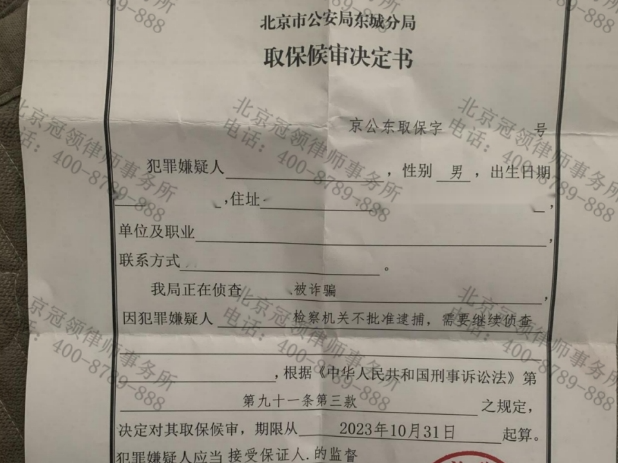 北京市公安局东城分局
取保候审决定书
京公东取保字 号
犯罪嫌疑人 ，性别 男 ，出生日期
，住址 ，
单位及职业 ，
联系方式 。
我局正在侦查 被诈骗 ，
因犯罪嫌疑人 检察机关不批准逮捕，需要继续侦查
，根据《中华人民共和国刑事诉讼法》第
第九十一条第三款 之规定，
决定对其取保候审，期限从 2023年10月31日 起算。
犯罪嫌疑人应当 接受保证人 的监督
北京冠领律师事务所
电话：400-8789-888
北京冠领律师事务所
电话：400-8789-888
北京冠领律师事务所
电话：400-8789-888
北京冠领律师事务所
电话：400-8789-888
北京冠领律师事务所
电话：400-8789-888
北京冠领律师事务所
电话：400-8789-888